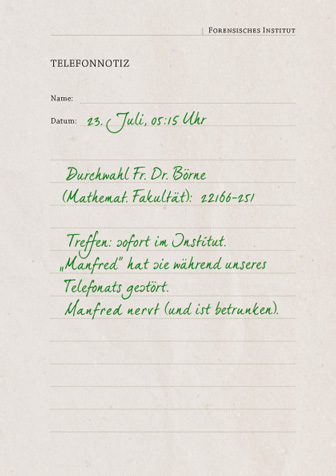 Forensisches Institut
TELEFONNOTIZ
Name:
Datum: 23. Juli, 05:15 Uhr
Durchwahl Fr. Dr. Börne
(Mathemat. Fakultät): 22166-251
Treffen: sofort im Institut.
„Manfred" hat sie während unseres
Telefonats gestört.
Manfred nervt (und ist betrunken).